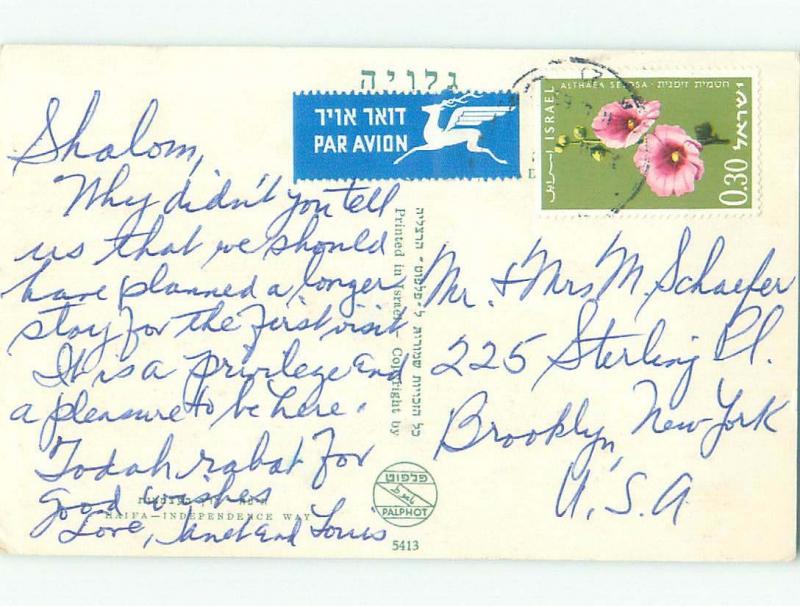 גלויה
דואר אויר
PAR AVION
ALTHAEA SETOSA · חטמית זיפנית
ISRAEL
ישראל
0.30
Shalom,
Why didn't you tell
us that we should
have planned a longer
stay for the first visit
It is a privilege and
a pleasure to be here.
Todah rabat for
good wishes
Love, Janet and Louis
HAIFA—INDEPENDENCE WAY
Printed in Israel — Copyright by
כל הזכויות שמורות ל״פלפוט״ הרצליה
Mr. & Mrs M. Schaefer
225 Sterling Pl.
Brooklyn, New York
U.S.A
פלפוט
PALPHOT
5413